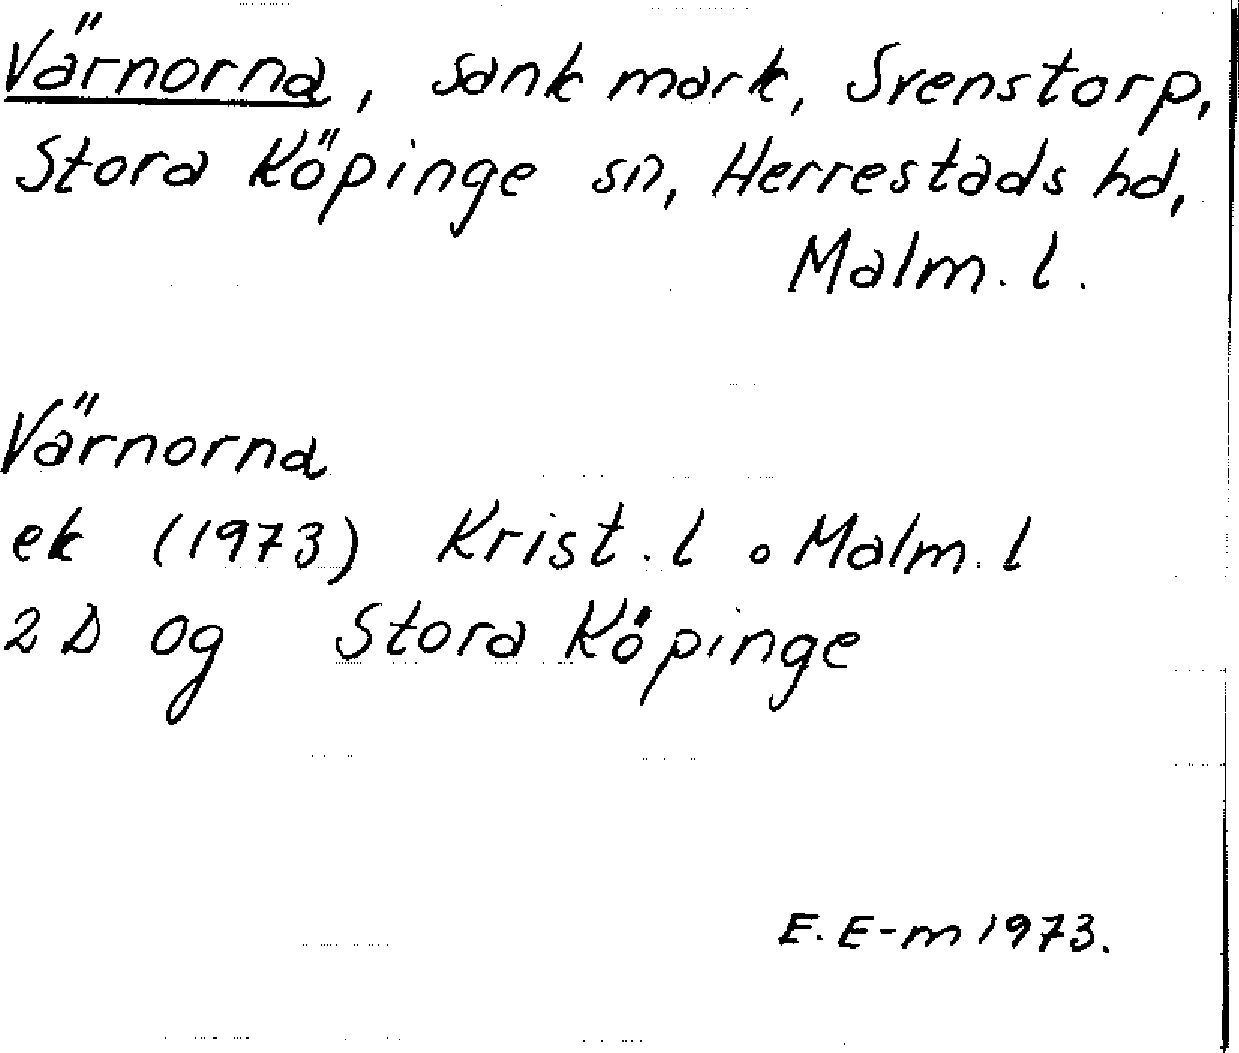 Värnorna, sank mark, Svenstorp,
Stora Köpinge sn, Herrestads hd,
Malm. l.
Värnorna
ek (1973) Krist. l o Malm. l
2 D og Stora Köpinge
E. E-m 1973.